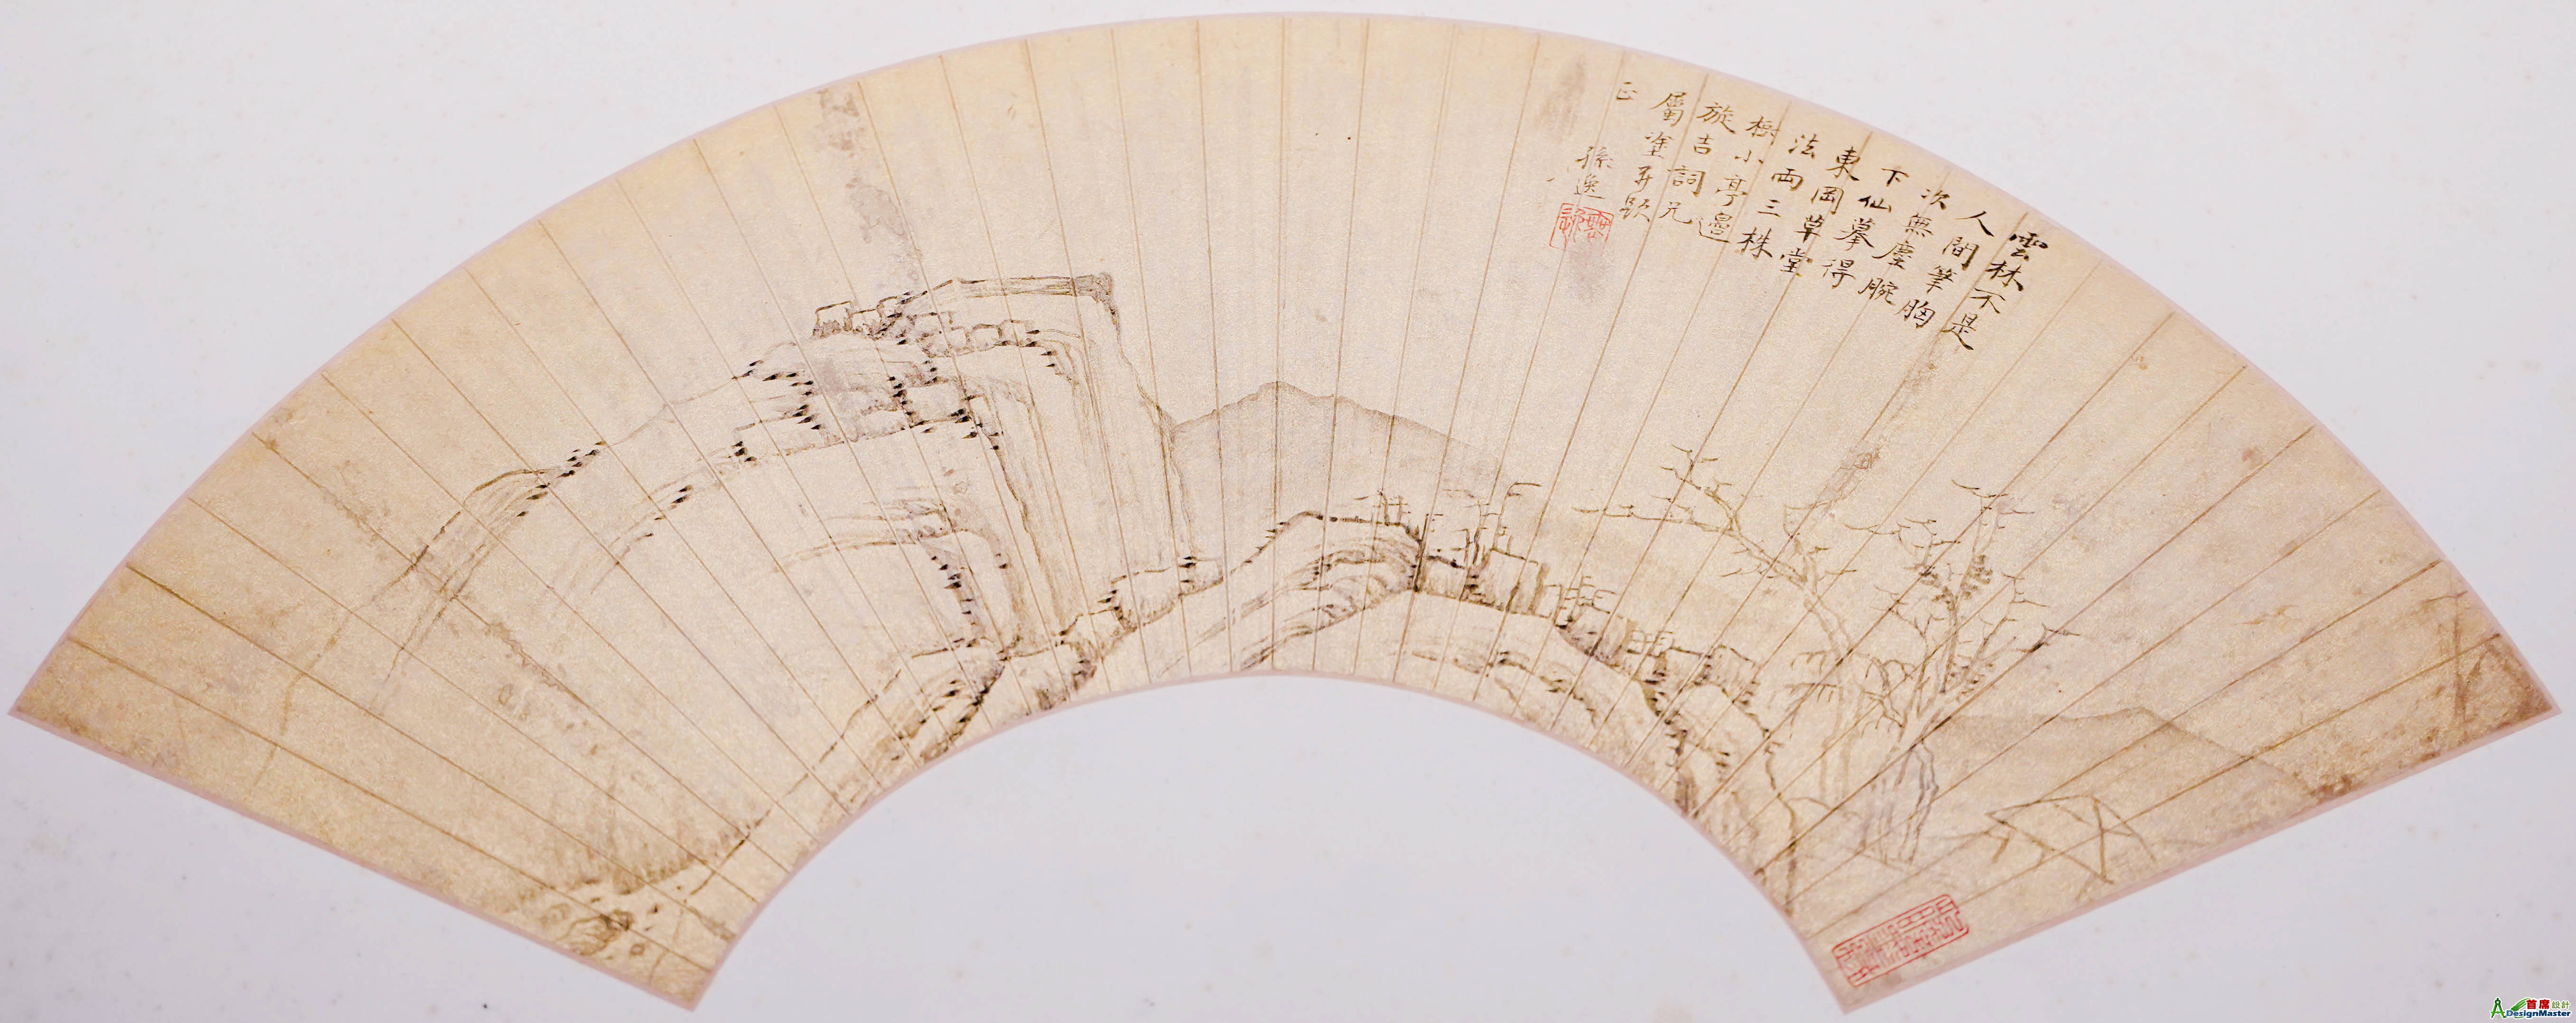 雲林不是
人間筆胸
次無塵腕
下仙摹得
東岡草堂
法両三株
樹小亭邉
旋吉詞兄
屬塗并題
正
孫逸
首席設計
DesignMaster